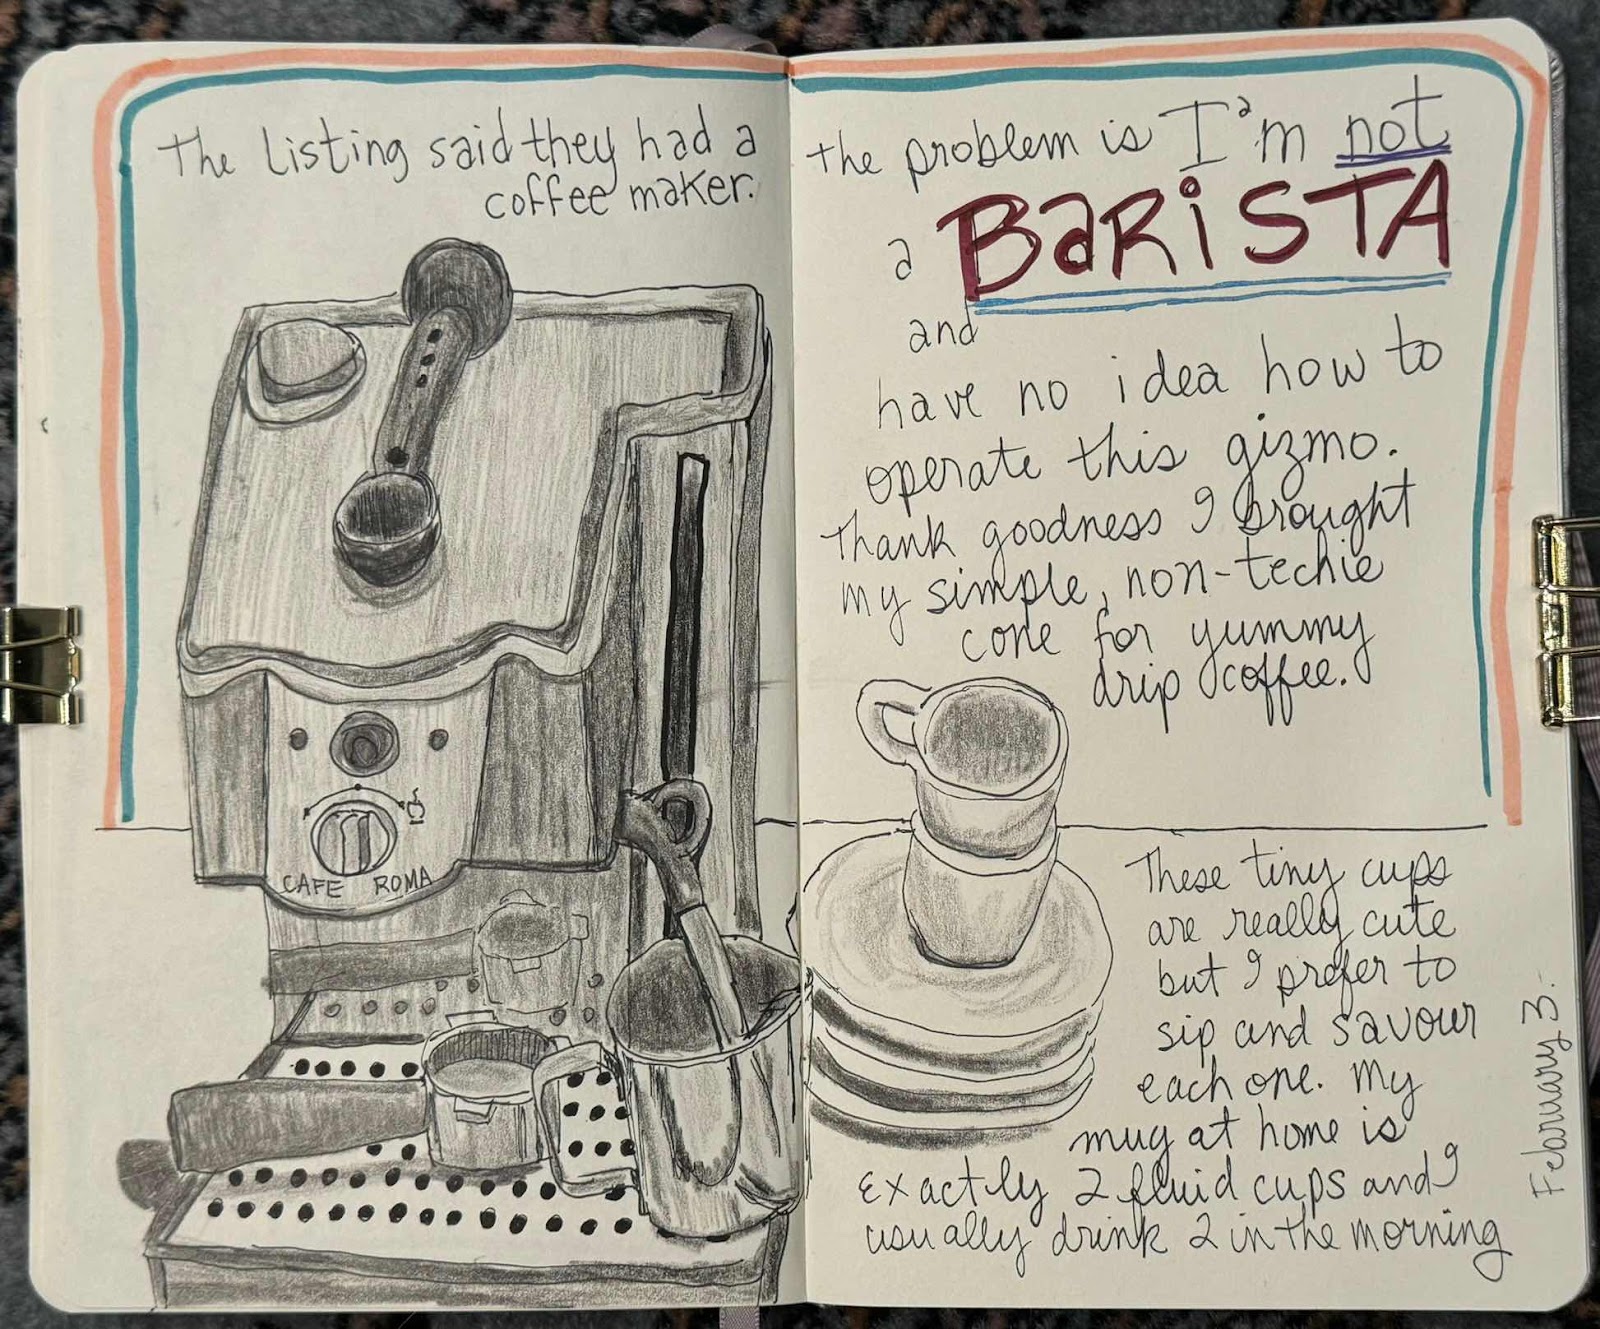 The Listing said they had a
coffee maker.
CAFE ROMA
the problem is I'm not
a BaRiSTA
and
have no idea how to
operate this gizmo.
Thank goodness I brought
my simple, non-techie
cone for yummy
drip coffee.
These tiny cups
are really cute
but I prefer to
sip and savour
each one. My
mug at home is
exactly 2 fluid cups and I
usually drink 2 in the morning
February 3.